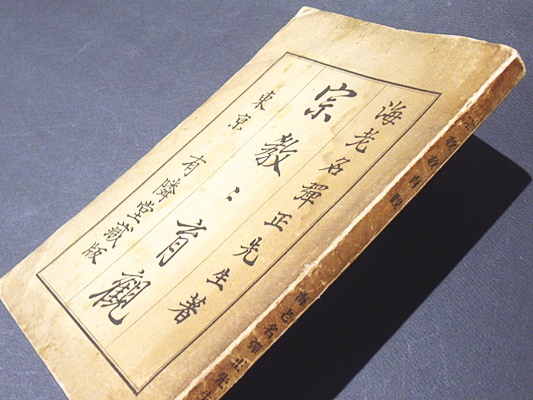 海老名彈正先生著
宗教々育觀
東京 有隣堂藏版
宗教々育觀
海老名彈正先生